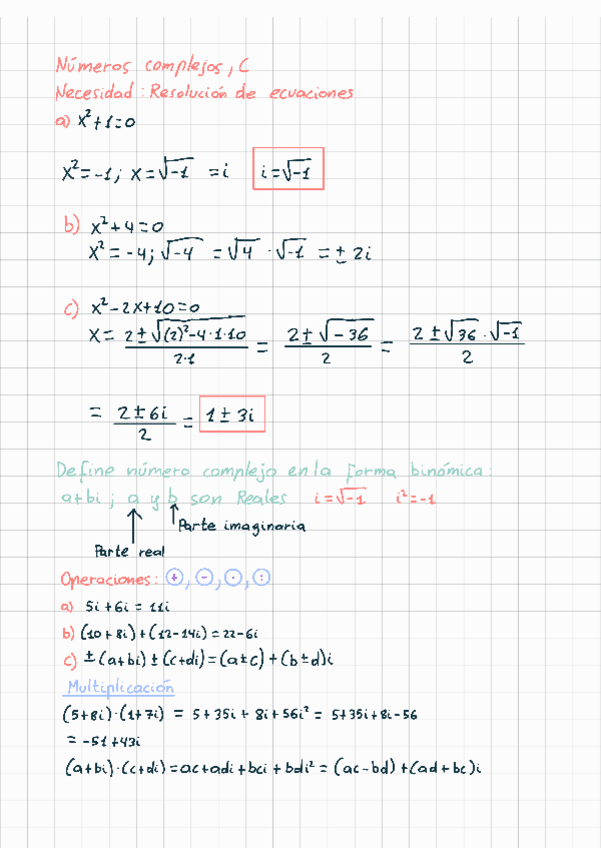 Números complejos, C
Necesidad: Resolución de ecuaciones
a) x²+1=0
x²=-1; x=√-1 =i i=√-1
b) x²+4=0
x²=-4; √-4 = √4 · √-1 = ± 2i
c) x²-2x+10=0
x= (2±√((2)²-4·1·10))/(2·1) = (2±√-36)/2 = (2±√36·√-1)/2
= (2±6i)/2 = 1±3i
Define número complejo en la forma binómica:
a+bi; a y b son Reales i=√-1 i²=-1
Parte imaginaria
Parte real
Operaciones: +, -, ·, :
a) 5i+6i = 11i
b) (10+8i)+(12-14i)=22-6i
c) ±(a+bi)±(c+di)=(a±c)+(b±d)i
Multiplicación
(5+8i)·(1+7i) = 5+35i+8i+56i² = 5+35i+8i-56
= -51+43i
(a+bi)·(c+di)=ac+adi+bci+bdi²=(ac-bd)+(ad+bc)i